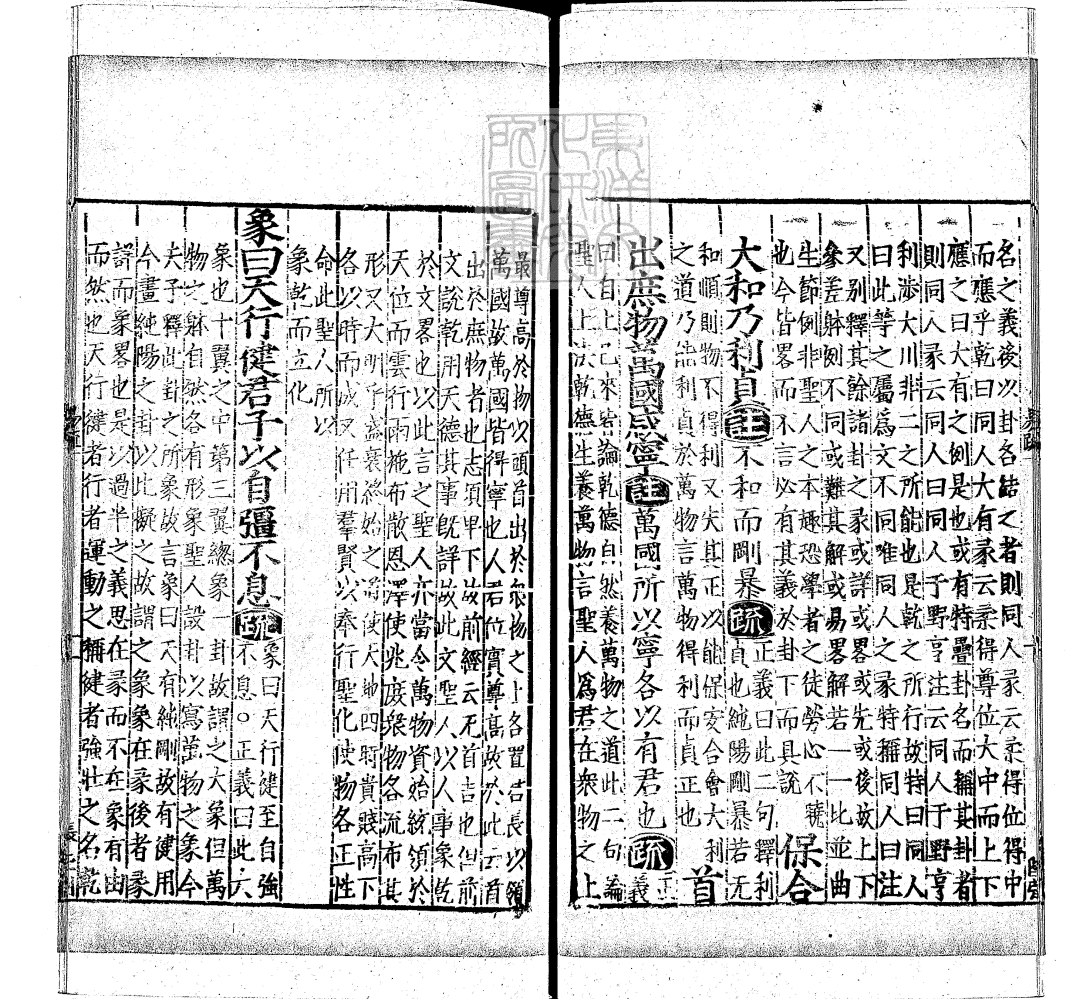 名之義後以卦名結之者則同人彖云柔得位得中
而應乎乾曰同人大有彖云柔得尊位大中而上下
應之曰大有之例是也或有特疊卦名而稱其卦者
則同人彖云同人曰同人于野亨注云同人于野亨
利涉大川非二之所能也是乾之所行故特曰同人
曰此等之屬爲文不同唯同人之彖特稱同人曰注
又别釋其餘諸卦之彖或詳或畧或先或後故上下
參差躰例不同或難其解或易畧解若一一比並曲
生節例非聖人之本趣恐學者之徒勞心不曉
也今皆畧而不言必有其義於卦下而具說
保合
大和乃利貞
註
不和而剛暴
疏
正義曰此二句釋利
貞也純陽剛暴若无
和順則物不得利又失其正以能保安合會大利
之道乃能利貞於萬物言萬物得利而貞正也
首
出庶物萬國咸寧
註
萬國所以寧各以有君也
疏
正
義
曰自上已來皆論乾德自然養萬物之道此二句論
聖人上法乾德生養萬物言聖人爲君在衆物之上
最尊高於物以頭首出於衆物之上各置君長以領
萬國故萬國皆得寧也人君位實尊高故於此云首
出於庶物者也志須卑下故前經云无首吉也但前
文說乾用天德其事旣詳故此文聖人以人事象乾
於文畧也以此言之聖人亦當令萬物資始統領於
天位而雲行雨施布散恩澤使兆庶衆物各流布其
形又大明乎盛衰終始之道使天地四時貴賤高下
各以時而成又任用羣賢以奉行聖化使物各正性
命此聖人所以
象乾而立化
象曰天行健君子以自彊不息
疏
象曰天行健至自強
不息○正義曰此六
象也十翼之中第三翼總象一卦故謂之大象但萬
物之躰自然各有形象聖人設卦以寫萬物之象今
夫子釋此卦之所象故言象曰天有純剛故有健用
今畫純陽之卦以比擬之故謂之象象在彖後者彖
詳而象畧也是以過半之義思在彖而不在象有由
而然也天行健者行者運動之稱健者強壯之名乾